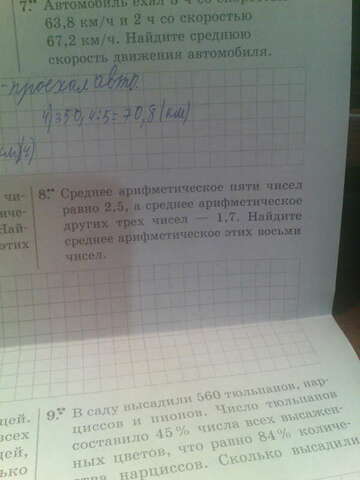 7. Автомобиль ехал 3 ч со скоростью
63,8 км/ч и 2 ч со скоростью
67,2 км/ч. Найдите среднюю
скорость движения автомобиля.
проехал авто.
4) 350,4:5=70,8 (км)
км/ч)
чи-
8. Среднее арифметическое пяти чисел
равно 2,5, а среднее арифметическое
Най-
других трех чисел — 1,7. Найдите
этих
среднее арифметическое этих восьми
чисел.
9. В саду высадили 560 тюльпанов, нар-
цей,
циссов и пионов. Число тюльпанов
всех
составило 45% числа всех высажен-
ей,
ных цветов, что равно 84% количе-
ько
ства нарциссов. Сколько высадили